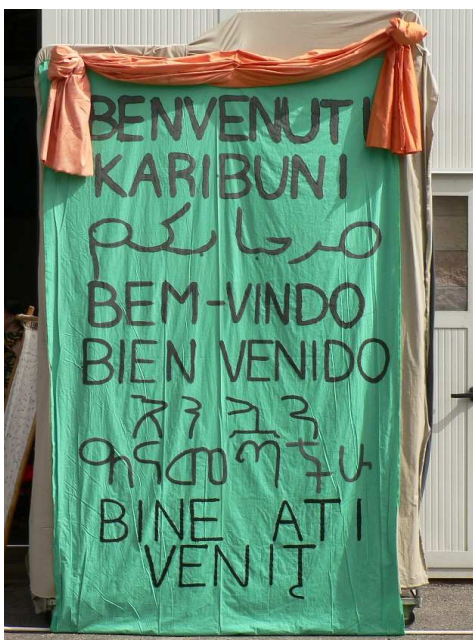 BENVENUTI
KARIBUNI
مرحبا بكم
BEM-VINDO
BIEN VENIDO
BINE ATI
VENIȚ